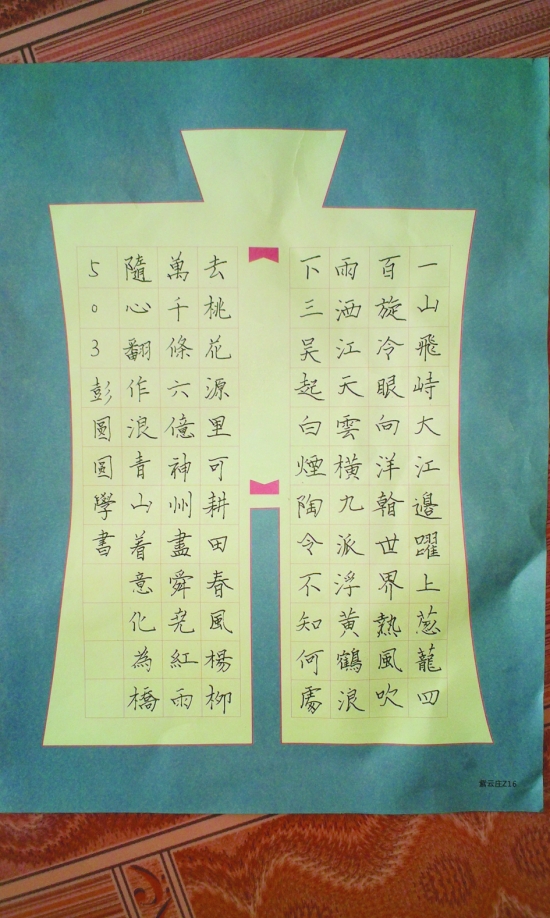 一山飛峙大江邊躍上蔥蘢四
百旋冷眼向洋看世界熱風吹
雨洒江天雲橫九派浮黃鶴浪
下三吳起白煙陶令不知何處
去桃花源里可耕田春風楊柳
萬千條六億神州盡舜堯紅雨
隨心翻作浪青山着意化為橋
503彭圓圓學書
紫云庄Z16